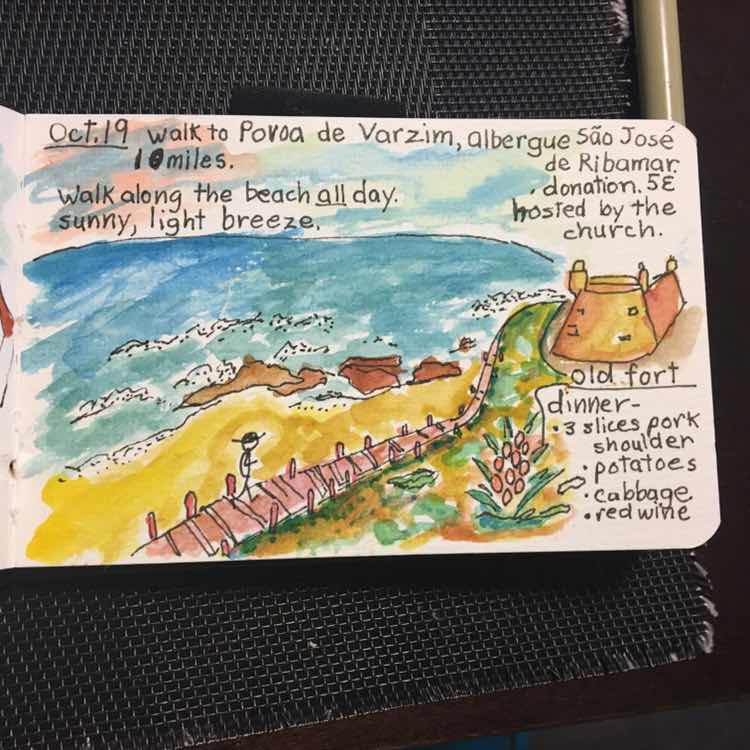 Oct. 19 walk to Povoa de Varzim, albergue São José
10 miles. de Ribamar.
. donation. 5€
Walk along the beach all day.
hosted by the
sunny, light breeze.
church.
old fort
dinner-
• 3 slices pork
shoulder
• potatoes
• cabbage
• red wine